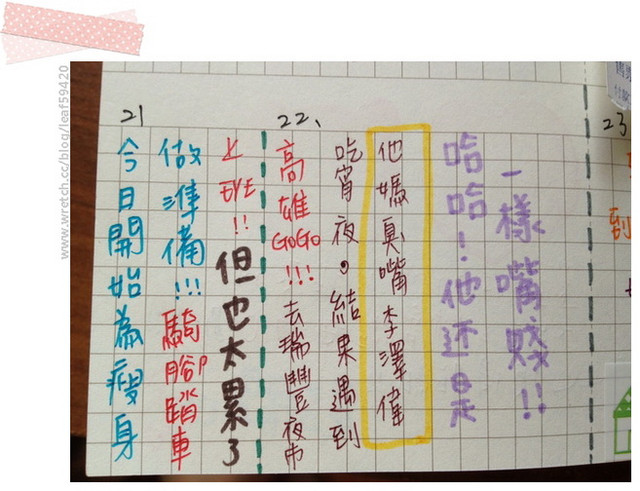 www.wretch.cc/blog/leaf59420
21
今日開始為瘦身
做準備!!! 騎腳踏車
!! 但也太累了
22、
高雄GoGo!!! 去瑞豐夜市
吃宵夜。結果遇到
他媽臭嘴李澤偉
哈哈!他还是
一樣嘴賤!!
23
到